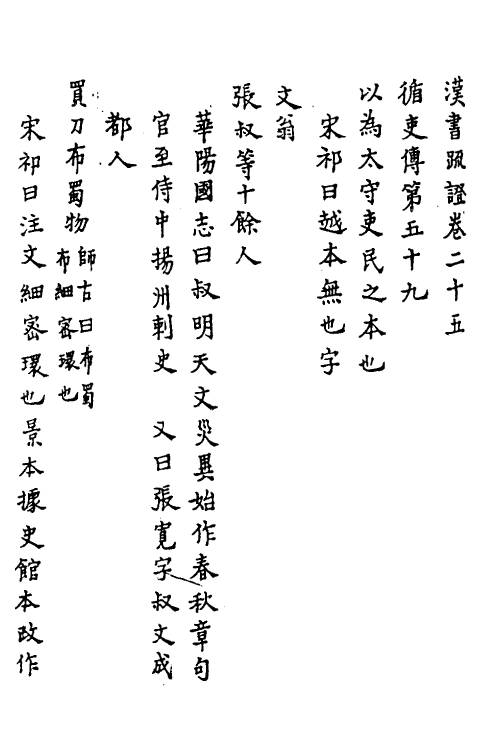 漢書疏證卷二十五
循吏傳第五十九
以為太守吏民之本也
宋祁曰越本無也字
文翁
張叔等十餘人
華陽國志曰叔明天文災異始作春秋章句
官至侍中揚州刺史　又曰張寬字叔文成
都人
買刀布蜀物師古曰布蜀布細密環也
宋祁曰注文細密環也景本據史館本改作